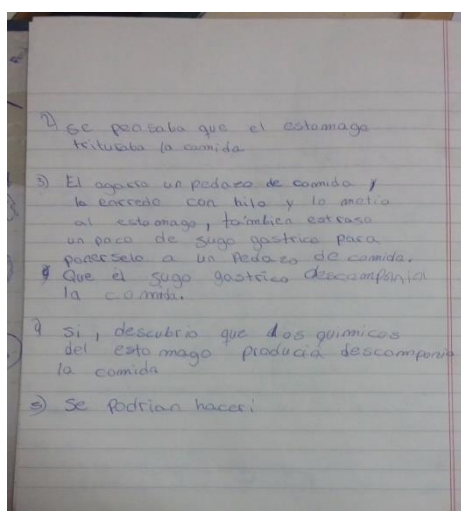 2) se pensaba que el estomago
trituraba la comida
3) El agarro un pedazo de comida y
lo enrredo con hilo y lo metia
al estoomago, tambien estraso
un poco de sugo gastrico para
ponerselo a un pedazo de comida.
Que el sugo gastrico descomponia
la comida.
4 si, descubrio que los quimicos
del estomago producia descomponia
la comida
5) Se podrian hacer: